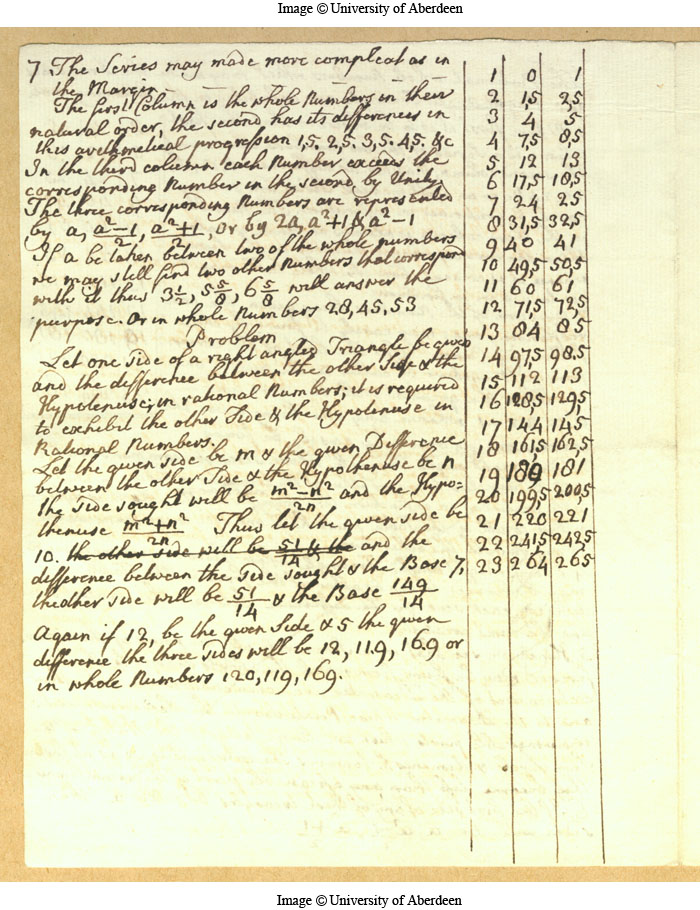 Image © University of Aberdeen
7 The Series may made more compleat as in
the Margin
The first Column is the whole Numbers in their
natural order, the second has its differences in
this arithmetical progression 1,5. 2,5. 3,5. 4,5. &c
In the third column each Number exceeds the
corresponding Number in the second by Unity.
The three corresponding Numbers are represented
by a, a²-1/2, a²+1/2, or by 2a, a²+1 & a²-1
If a be taken between two of the whole numbers
we may still find two other Numbers that correspond
with it thus 3 1/2, 5 5/8, 6 5/8 will answer the
purpose. Or in whole Numbers 28, 45, 53
Problem
Let one side of a right angled Triangle be given
and the difference between the other Side & the
Hypotenuse; in rational Numbers; it is required
to exhibit the other Side & the Hypotenuse in
Rational Numbers.
Let the given side be m & the given Difference
between the other Side & the Hypothenuse be n
the Side sought will be m²-n²/2n and the Hypo=
thenuse m²+n²/2n Thus let the given side be
10. the other side will be 51/14 & the and the
difference between the Side sought & the Base 7,
the other Side will be 51/14 & the Base 149/14
Again if 12, be the given Side & 5 the given
difference the three Sides will be 12, 11.9, 16.9 or
in whole Numbers 120, 119, 169.
1 0 1
2 1,5 2,5
3 4 5
4 7,5 8,5
5 12 13
6 17,5 18,5
7 24 25
8 31,5 32,5
9 40 41
10 49,5 50,5
11 60 61
12 71,5 72,5
13 84 85
14 97,5 98,5
15 112 113
16 128,5 129,5
17 144 145
18 161,5 162,5
19 180 181
20 199,5 200,5
21 220 221
22 241,5 242,5
23 264 265
Image © University of Aberdeen